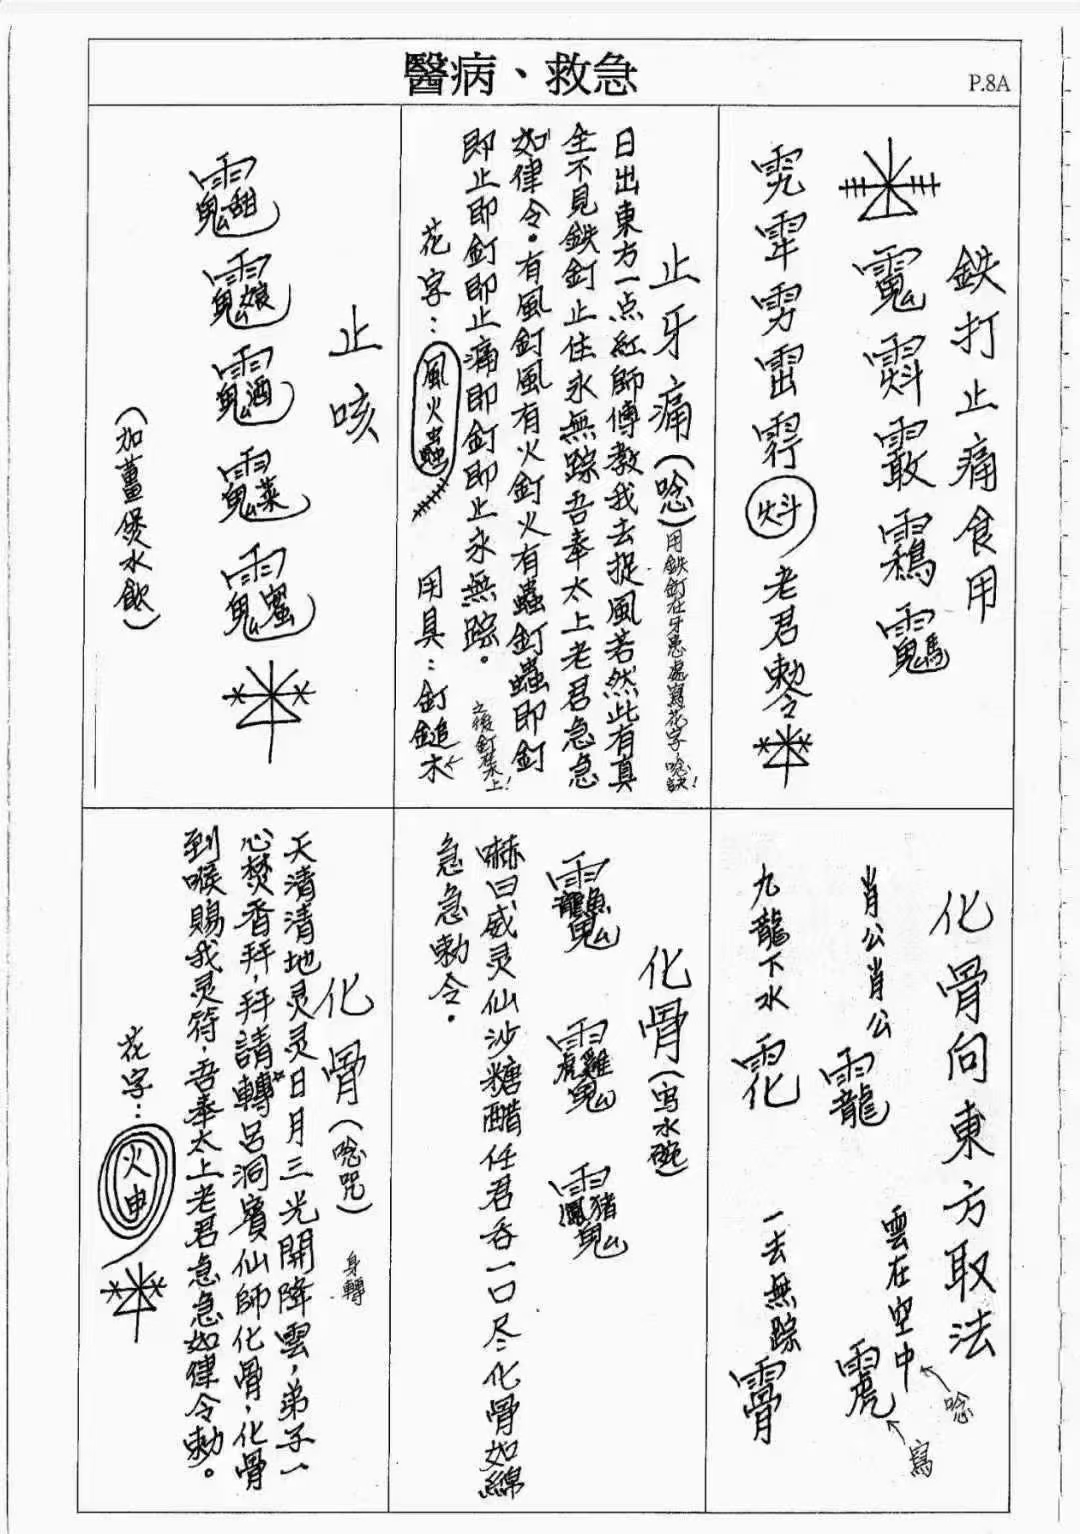 醫病、救急
P.8A
鉄打止痛食用
老君勅令
止牙痛(唸)
用鉄釘在牙患處寫花字唸訣!
日出東方一点紅師傅教我去捉風若然此有真
全不見鉄釘止住永無踪吾奉太上老君急急
如律令。有風釘風有火釘火有蟲釘蟲即釘
即止即釘即止痛即釘即止永無踪。
花字:風火蟲
用具:釘鎚木
之後釘木上!
止咳
(加薑煲水飲)
化骨向東方取法
肖公肖公
雲在空中
唸
寫
九龍下水
一去無踪
化骨(写水碗)
嚇曰威灵仙沙糖醋任君吞一口尽化骨如綿
急急勅令。
化骨(唸咒)
身轉
天清清地灵灵日月三光開降雲,弟子一
心焚香拜,拜請轉呂洞賓仙師化骨,化骨
到喉賜我灵符,吾奉太上老君急急如律令勅。
花字:火申